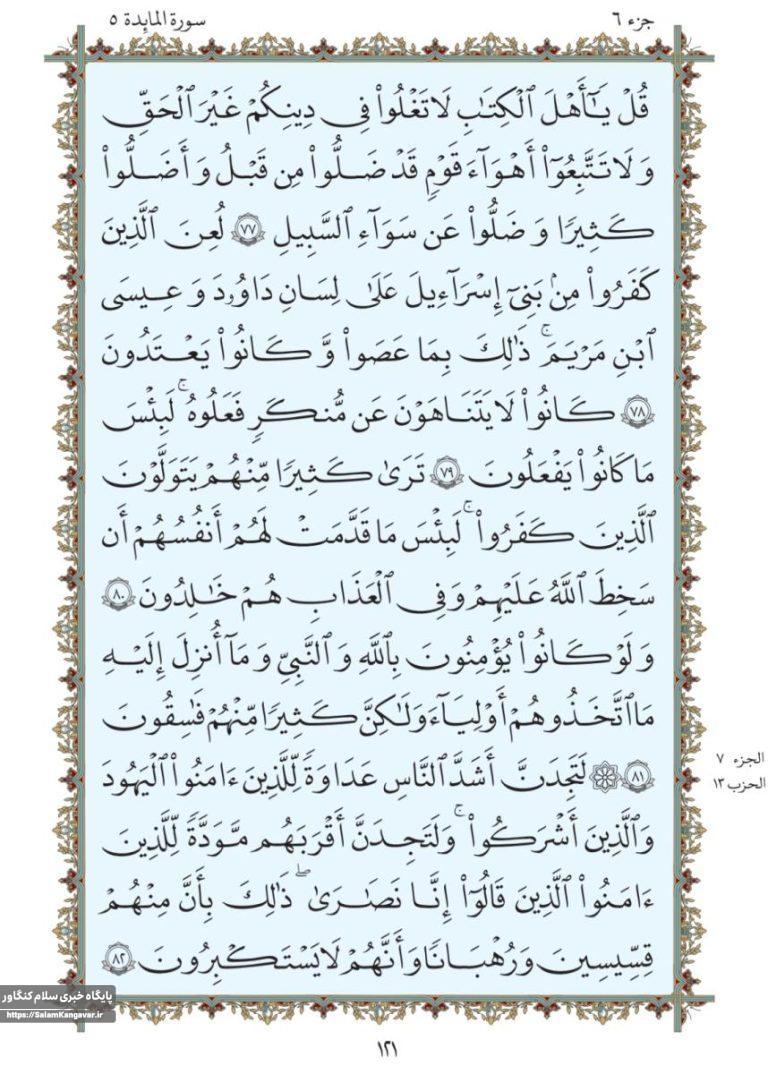 سورة المايدة ۵
جزء ۶
قُلْ يَـٰٓأَهْلَ ٱلْكِتَـٰبِ لَا تَغْلُوا۟ فِى دِينِكُمْ غَيْرَ ٱلْحَقِّ
وَلَا تَتَّبِعُوٓا۟ أَهْوَآءَ قَوْمٍ قَدْ ضَلُّوا۟ مِن قَبْلُ وَأَضَلُّوا۟
كَثِيرًا وَضَلُّوا۟ عَن سَوَآءِ ٱلسَّبِيلِ ٧٧ لُعِنَ ٱلَّذِينَ
كَفَرُوا۟ مِنۢ بَنِىٓ إِسْرَٰٓءِيلَ عَلَىٰ لِسَانِ دَاوُۥدَ وَعِيسَى
ٱبْنِ مَرْيَمَ ۚ ذَٰلِكَ بِمَا عَصَوا۟ وَّكَانُوا۟ يَعْتَدُونَ
٧٨ كَانُوا۟ لَا يَتَنَاهَوْنَ عَن مُّنكَرٍ فَعَلُوهُ ۚ لَبِئْسَ
مَا كَانُوا۟ يَفْعَلُونَ ٧٩ تَرَىٰ كَثِيرًا مِّنْهُمْ يَتَوَلَّوْنَ
ٱلَّذِينَ كَفَرُوا۟ ۚ لَبِئْسَ مَا قَدَّمَتْ لَهُمْ أَنفُسُهُمْ أَن
سَخِطَ ٱللَّهُ عَلَيْهِمْ وَفِى ٱلْعَذَابِ هُمْ خَـٰلِدُونَ ٨٠
وَلَوْ كَانُوا۟ يُؤْمِنُونَ بِٱللَّهِ وَٱلنَّبِىِّ وَمَآ أُنزِلَ إِلَيْهِ
مَا ٱتَّخَذُوهُمْ أَوْلِيَآءَ وَلَـٰكِنَّ كَثِيرًا مِّنْهُمْ فَـٰسِقُونَ
٨١ ۞ لَتَجِدَنَّ أَشَدَّ ٱلنَّاسِ عَدَاوَةً لِّلَّذِينَ ءَامَنُوا۟ ٱلْيَهُودَ
وَٱلَّذِينَ أَشْرَكُوا۟ ۚ وَلَتَجِدَنَّ أَقْرَبَهُم مَّوَدَّةً لِّلَّذِينَ
ءَامَنُوا۟ ٱلَّذِينَ قَالُوٓا۟ إِنَّا نَصَـٰرَىٰ ۖ ذَٰلِكَ بِأَنَّ مِنْهُمْ
قِسِّيسِينَ وَرُهْبَانًا وَأَنَّهُمْ لَا يَسْتَكْبِرُونَ ٨٢
الجزء ۷
الحزب ۱۳
پایگاه خبری سلام کنگاور
https://SalamKangavar.ir
١٢١